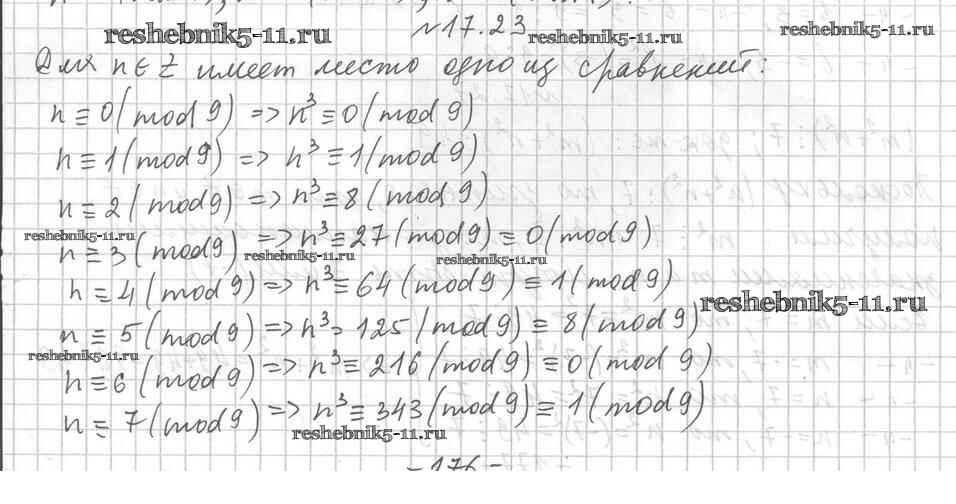 reshebnik5-11.ru №17.23 reshebnik5-11.ru reshebnik5-11.ru
Для n ∈ Z имеет место одно из сравнений:
n ≡ 0 (mod 9) => n³ ≡ 0 (mod 9)
n ≡ 1 (mod 9) => n³ ≡ 1 (mod 9)
n ≡ 2 (mod 9) => n³ ≡ 8 (mod 9)
reshebnik5-11.ru
n ≡ 3 (mod 9) => n³ ≡ 27 (mod 9) ≡ 0 (mod 9)
reshebnik5-11.ru reshebnik5-11.ru
n ≡ 4 (mod 9) => n³ ≡ 64 (mod 9) ≡ 1 (mod 9)
reshebnik5-11.ru
n ≡ 5 (mod 9) => n³ = 125 (mod 9) ≡ 8 (mod 9)
reshebnik5-11.ru
n ≡ 6 (mod 9) => n³ ≡ 216 (mod 9) ≡ 0 (mod 9)
n ≡ 7 (mod 9) => n³ ≡ 343 (mod 9) ≡ 1 (mod 9)
reshebnik5-11.ru
- 176 -